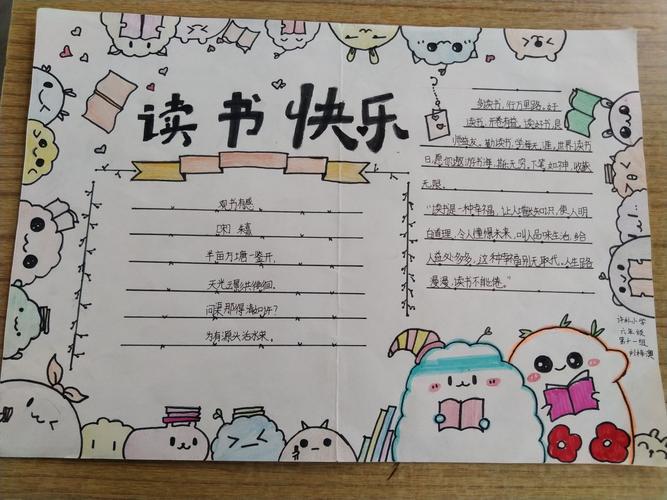 读书快乐
观书有感
[宋] 朱熹
半亩方塘一鉴开,
天光云影共徘徊。
问渠那得清如许?
为有源头活水来。
多读书,行万里路。好
读书,开卷有益。读好书,良
师益友。勤读书,学海无涯,世界读书
日,愿你遨游书海,其乐无穷。下笔如神,收获
无限。
“读书是一种幸福,让人增长知识,使人明
白道理,令人憧憬未来,叫人品味生活,给
人益处多多,这种幸福别无取代。人生路
漫漫,读书不能倦。”
小学
六年级
第十一组